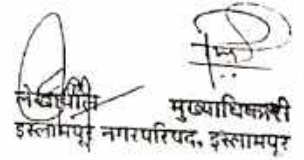 लेखापाल मुख्याधिकारी
इस्लामपूर नगरपरिषद, इस्लामपूर